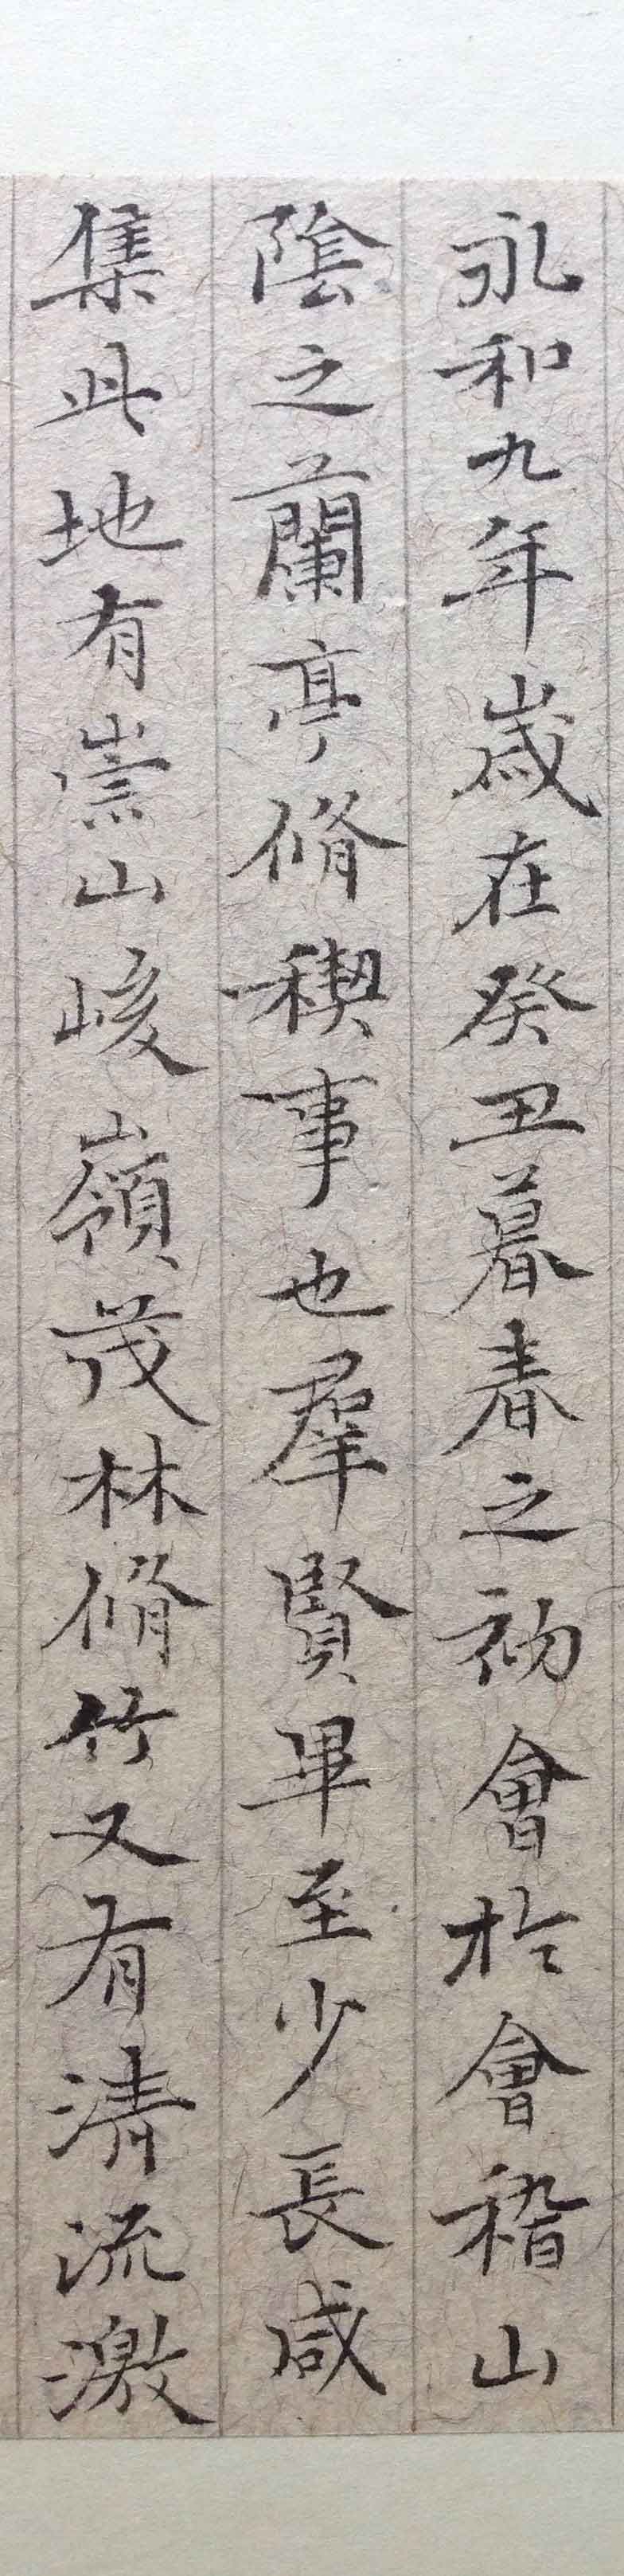 永和九年歲在癸丑暮春之初會於會稽山
陰之蘭亭脩稧事也羣賢畢至少長咸
集此地有崇山峻嶺茂林脩竹又有清流激